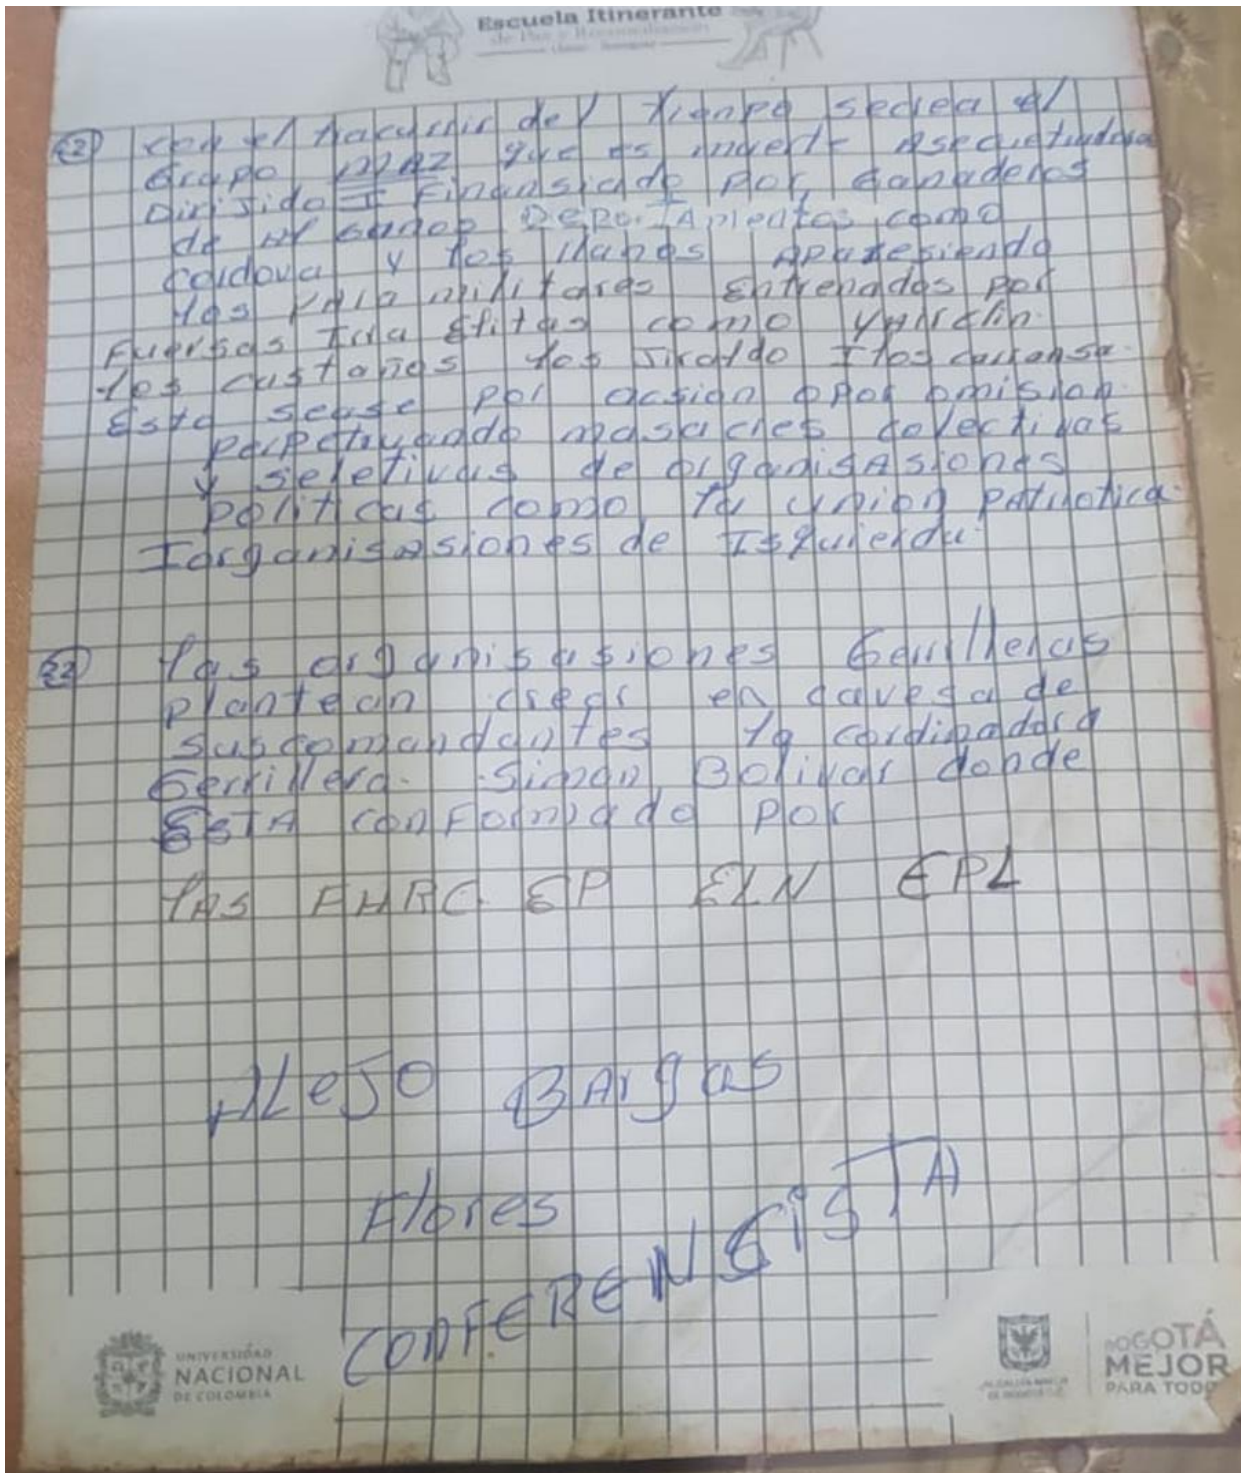 Escuela Itinerante
de Paz y Reconciliación
22 con el trakurrir del tienpo secrea el
Grupo MAZ que es muerte Asecuestradores
DiriJido I Finansiado por Ganaderos
de Depo.TAmentos como
Cordova y los llanos Aparesiendo
los Paramilitares Entrenados por
Fuersas Isra Elitas como Yair clin.
los castaños los Jiraldo I los carransa.
Esto sease por acsion opor omision.
perpetruando masacres colectivas
y seletivas de organisAsiones
politicas como la union patriotica.
I organisasiones de Isquierda.
23 las organisasiones Gerrilleras
plantean crear en cavesa de
sus comandantes la cordinadora
Gerrillera. Simon Bolivar donde
EsTA conFormada por
lAS FARC EP ELN EPL
ALeJO BArgas
Flores
CONFERENSISTA
UNIVERSIDAD
NACIONAL
DE COLOMBIA
ALCALDÍA MAYOR
DE BOGOTÁ D.C.
BOGOTÁ
MEJOR
PARA TODOS